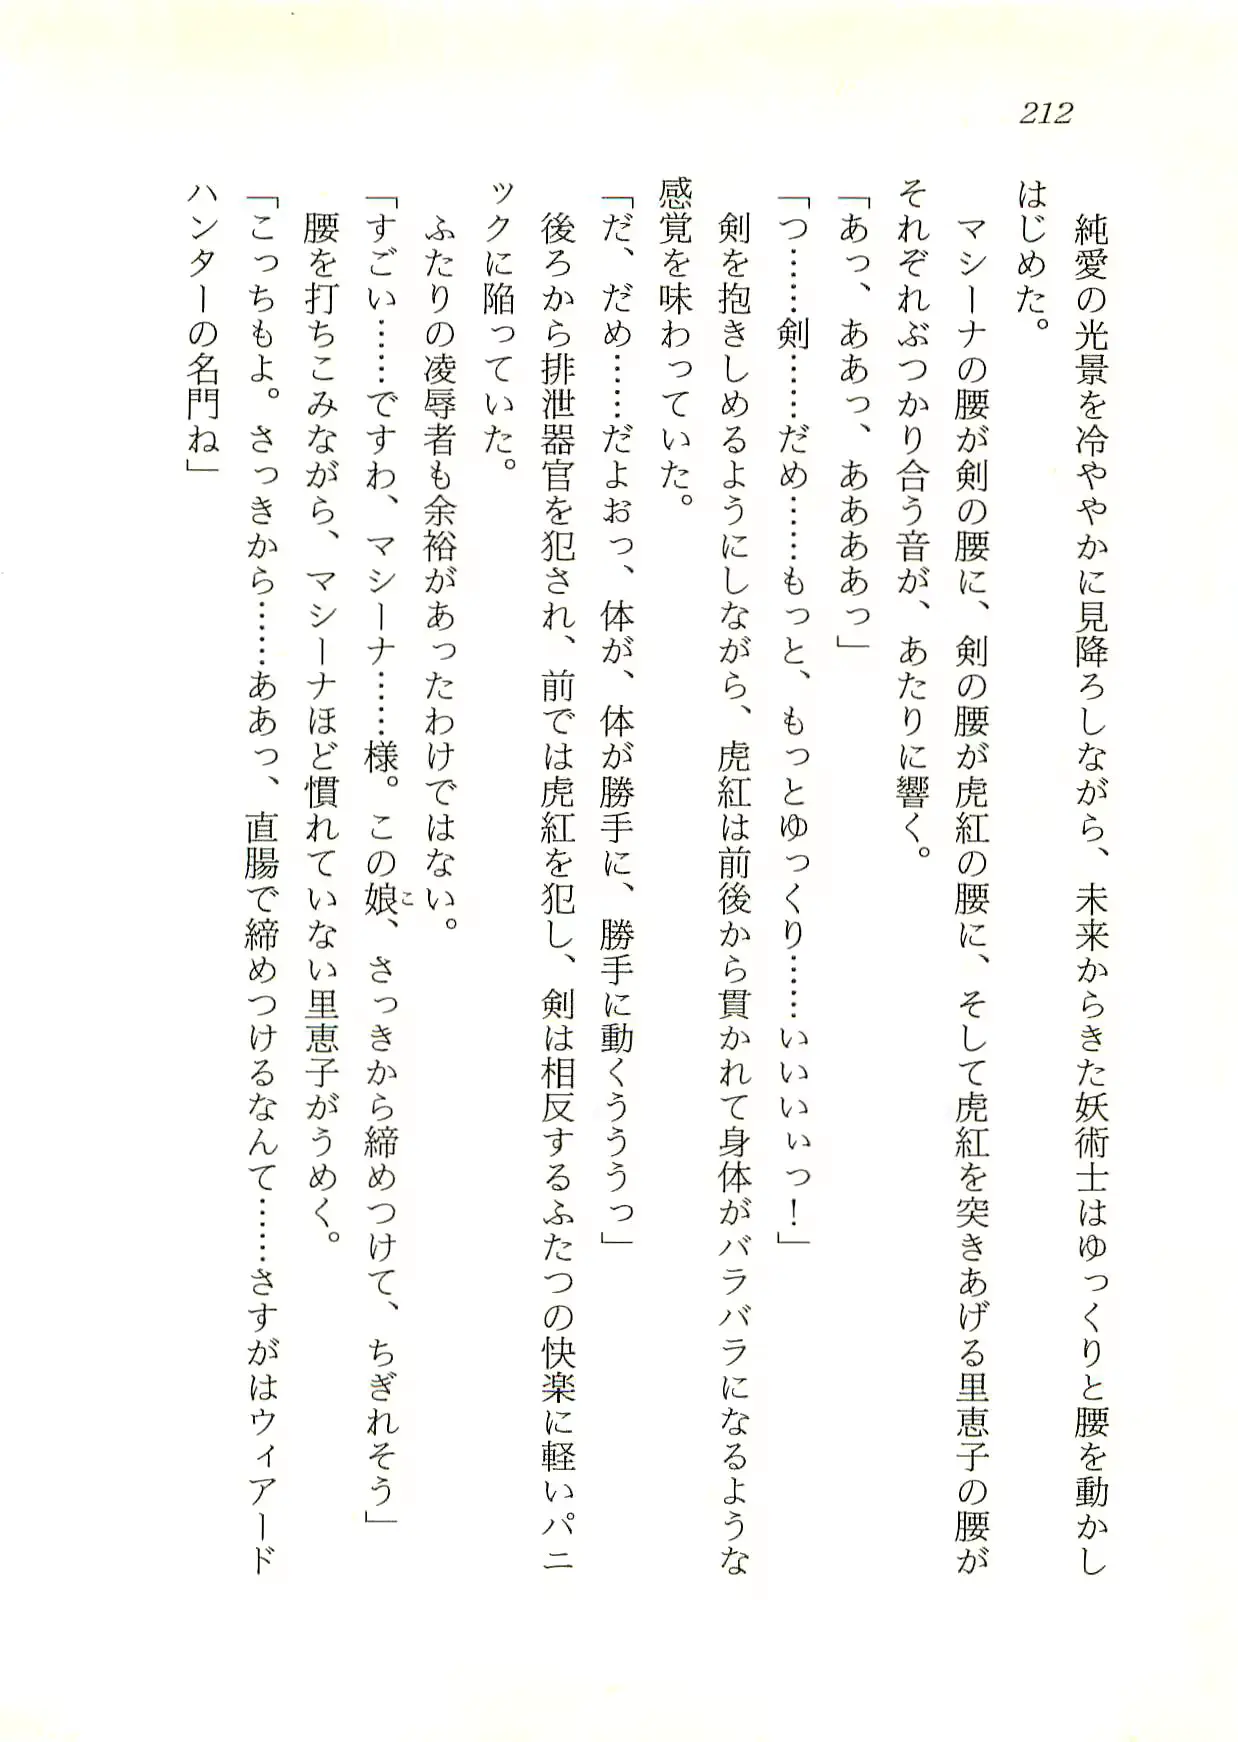 212
純愛の光景を冷ややかに見降ろしながら、未来からきた妖術士はゆっくりと腰を動かし
はじめた。
マシーナの腰が剣の腰に、剣の腰が虎紅の腰に、そして虎紅を突きあげる里恵子の腰が
それぞれぶつかり合う音が、あたりに響く。
「あっ、ああっ、ああああっ」
「つ……剣……だめ……もっと、もっとゆっくり……いいいぃっ！」
剣を抱きしめるようにしながら、虎紅は前後から貫かれて身体がバラバラになるような
感覚を味わっていた。
「だ、だめ……だよぉっ、体が、体が勝手に、勝手に動くうううっ」
後ろから排泄器官を犯され、前では虎紅を犯し、剣は相反するふたつの快楽に軽いパニ
ックに陥っていた。
ふたりの凌辱者も余裕があったわけではない。
「すごい……ですわ、マシーナ……様。この娘こ、さっきから締めつけて、ちぎれそう」
腰を打ちこみながら、マシーナほど慣れていない里恵子がうめく。
「こっちもよ。さっきから……ああっ、直腸で締めつけるなんて……さすがはウィアード
ハンターの名門ね」